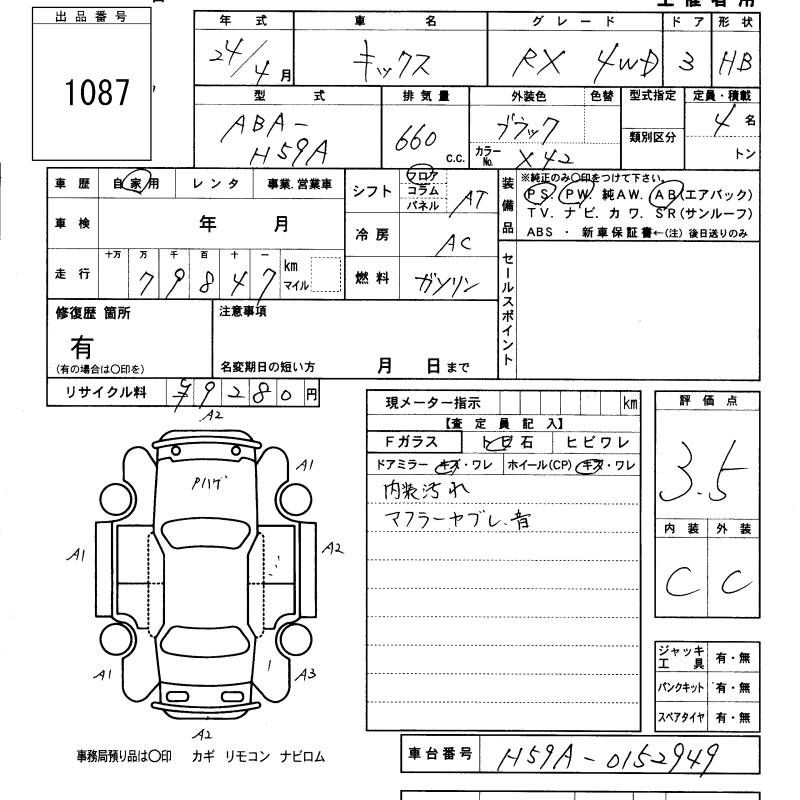 出品番号
1087
年式 車名 グレード ドア 形状
24/4月 キックス RX 4WD 3 HB
型式 排気量 外装色 色替 型式指定 定員・積載
ABA-H59A 660 c.c. ブラック 類別区分 4名
カラーNo. X42 トン
車歴 自家用 レンタ 事業.営業車
シフト フロア コラム パネル AT
装備品 ※純正のみ○印をつけて下さい。
PS. PW. 純AW. AB(エアバック)
TV. ナビ. カワ. SR(サンルーフ)
ABS ・ 新車保証書←(注) 後日送りのみ
車検 年 月
冷房 AC
走行 十万 万 千 百 十 一
79847 km マイル
燃料 ガソリン
セールスポイント
修復歴 箇所 注意事項
有
(有の場合は○印を) 名変期日の短い方 月 日まで
リサイクル料 ¥9280円
現メーター指示 km
【査定員記入】
Fガラス ト日石 ヒビワレ
ドアミラー キズ・ワレ ホイール(CP) キズ・ワレ
内装汚れ
マフラーヤブレ.音
評価点
3.5
内装 外装
C C
A2
Pハゲ
A1
A1
A2
A1
A3
A2
ジャッキ工具 有・無
パンクキット 有・無
スペアタイヤ 有・無
事務局預り品は○印 カギ リモコン ナビロム
車台番号 H59A-0152949